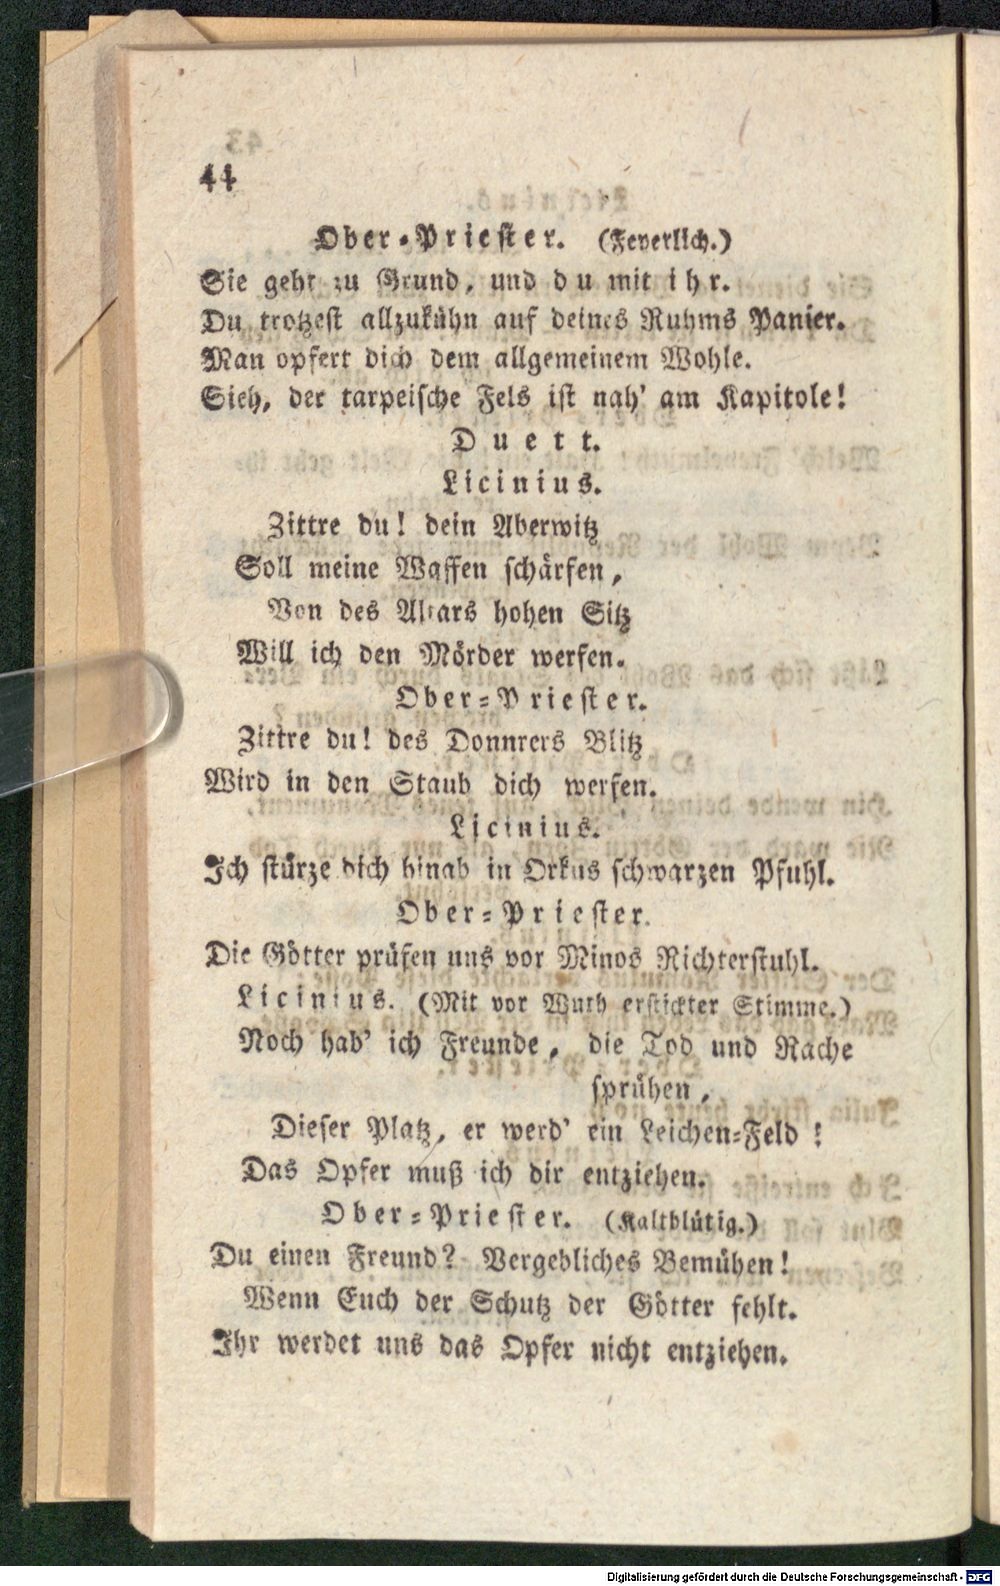 44
Ober-Priester. (Feyerlich.)
Sie geht zu Grund, und du mit ihr.
Du trotzest allzukühn auf deines Ruhms Panier.
Man opfert dich dem allgemeinem Wohle.
Sieh, der tarpeische Fels ist nah' am Kapitole!
Duett.
Licinius.
Zittre du! dein Aberwitz
Soll meine Waffen schärfen,
Von des Altars hohen Sitz
Will ich den Mörder werfen.
Ober-Priester.
Zittre du! des Donnrers Blitz
Wird in den Staub dich werfen.
Licinius.
Ich stürze dich hinab in Orkus schwarzen Pfuhl.
Ober-Priester.
Die Götter prüfen uns vor Minos Richterstuhl.
Licinius. (Mit vor Wuth erstickter Stimme.)
Noch hab' ich Freunde, die Tod und Rache
sprühen,
Dieser Platz, er werd' ein Leichen-Feld!
Das Opfer muß ich dir entziehen.
Ober-Priester. (Kaltblütig.)
Du einen Freund? Vergebliches Bemühen!
Wenn Euch der Schutz der Götter fehlt.
Ihr werdet uns das Opfer nicht entziehen.
Digitalisierung gefördert durch die Deutsche Forschungsgemeinschaft - DFG